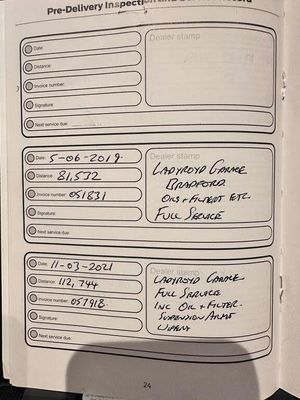 Pre-Delivery Inspection and Service Record
Date:
Distance:
Invoice number:
Signature:
Next service due:
Dealer stamp
Date: 5-06-2019.
Distance: 81,572
Invoice number: 051831
Signature:
Next service due:
Dealer stamp
LADYROYD GARAGE
BRADFORD
OILS + FILTERS ETC.
FULL SERVICE
Date: 11-03-2021
Distance: 112,744
Invoice number: 057918
Signature:
Next service due:
Dealer stamp
LADYROYD GARAGE
FULL SERVICE
INC OIL + FILTER.
SUSPENSION ARMS
WIPERS
24